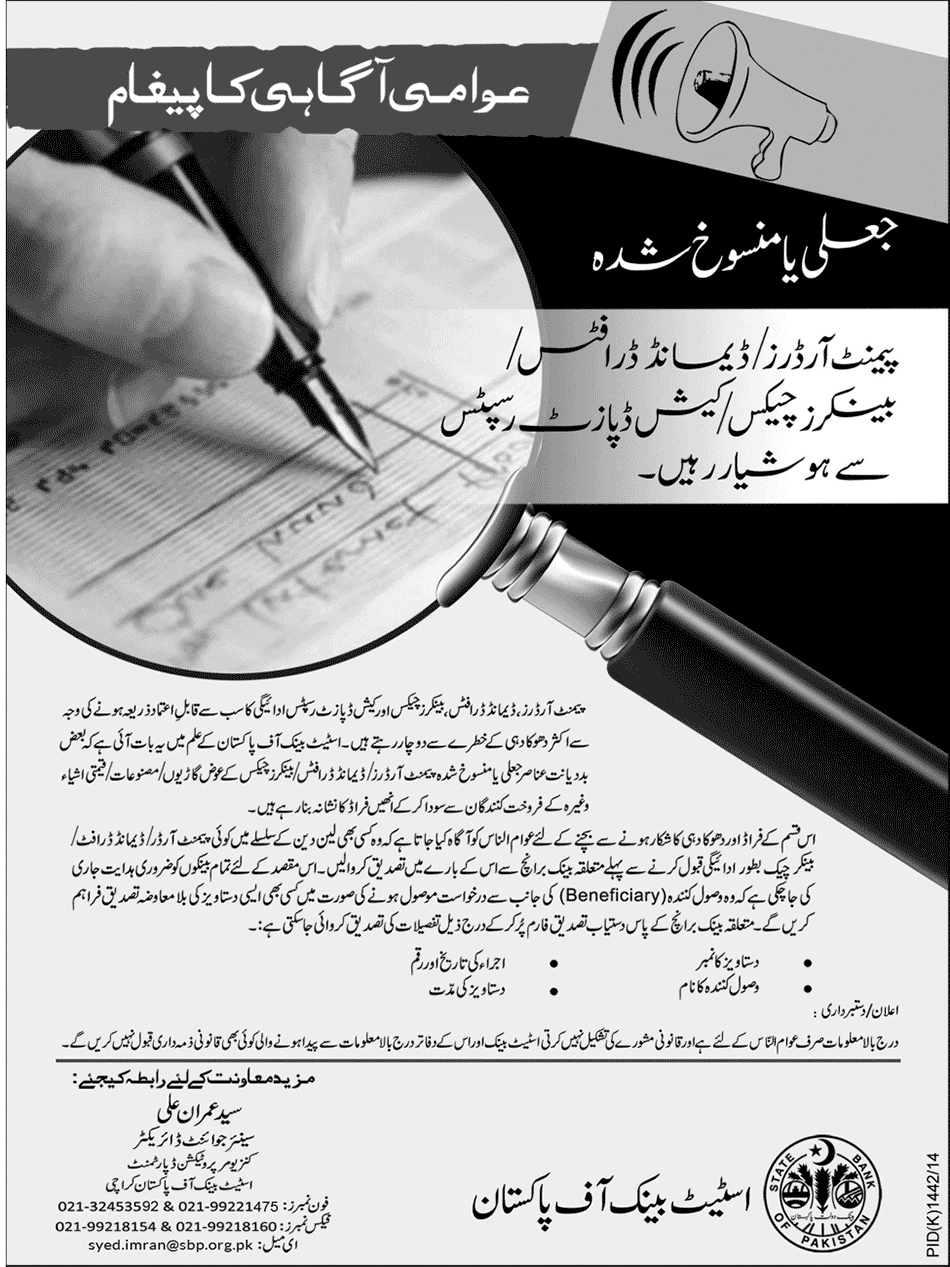 عوامی آگاہی کا پیغام
جعلی یا منسوخ شدہ
پیمنٹ آرڈرز/ڈیمانڈ ڈرافٹس/
بینکرز چیکس/کیش ڈپازٹ رسپٹس
سے ہوشیار رہیں۔
پیمنٹ آرڈرز، ڈیمانڈ ڈرافٹس، بینکرز چیکس اور کیش ڈپازٹ رسپٹس ادائیگی کا سب سے قابلِ اعتماد ذریعہ ہونے کی وجہ
سے اکثر دھوکا دہی کے خطرے سے دوچار رہتے ہیں۔ اسٹیٹ بینک آف پاکستان کے علم میں یہ بات آئی ہے کہ بعض
بددیانت عناصر جعلی یا منسوخ شدہ پیمنٹ آرڈرز/ڈیمانڈ ڈرافٹس/بینکرز چیکس کے عوض گاڑیوں/مصنوعات/قیمتی اشیاء
وغیرہ کے فروخت کنندگان سے سودا کر کے انھیں فراڈ کا نشانہ بنا رہے ہیں۔
اس قسم کے فراڈ اور دھوکا دہی کا شکار ہونے سے بچنے کے لئے عوام الناس کو آگاہ کیا جاتا ہے کہ وہ کسی بھی لین دین کے سلسلے میں کوئی پیمنٹ آرڈر/ڈیمانڈ ڈرافٹ/
بینکر چیک بطور ادائیگی قبول کرنے سے پہلے متعلقہ بینک برانچ سے اس کے بارے میں تصدیق کروالیں۔ اس مقصد کے لئے تمام بینکوں کو ضروری ہدایت جاری
کی جاچکی ہے کہ وہ وصول کنندہ (Beneficiary) کی جانب سے درخواست موصول ہونے کی صورت میں کسی بھی ایسی دستاویز کی بلا معاوضہ تصدیق فراہم
کریں گے۔ متعلقہ بینک برانچ کے پاس دستیاب تصدیق فارم پُر کر کے درج ذیل تفصیلات کی تصدیق کروائی جاسکتی ہے:۔
• دستاویز کا نمبر • اجراء کی تاریخ اور رقم
• وصول کنندہ کا نام • دستاویز کی مدّت
اعلان/دستبرداری :
درج بالا معلومات صرف عوام النّاس کے لئے ہے اور قانونی مشورے کی تشکیل نہیں کرتی اسٹیٹ بینک اور اس کے دفاتر درج بالا معلومات سے پیدا ہونے والی کوئی بھی قانونی ذمہ داری قبول نہیں کریں گے۔
مزید معاونت کے لئے رابطہ کیجئے:
سید عمران علی
سینئر جوائنٹ ڈائریکٹر
کنزیومر پروٹیکشن ڈپارٹمنٹ
اسٹیٹ بینک آف پاکستان کراچی
فون نمبرز: 021-99221475 & 021-32453592
فیکس نمبرز: 021-99218160 & 021-99218154
ای میل: syed.imran@sbp.org.pk
اسٹیٹ بینک آف پاکستان
STATE BANK
OF PAKISTAN
PID(K)1442/14